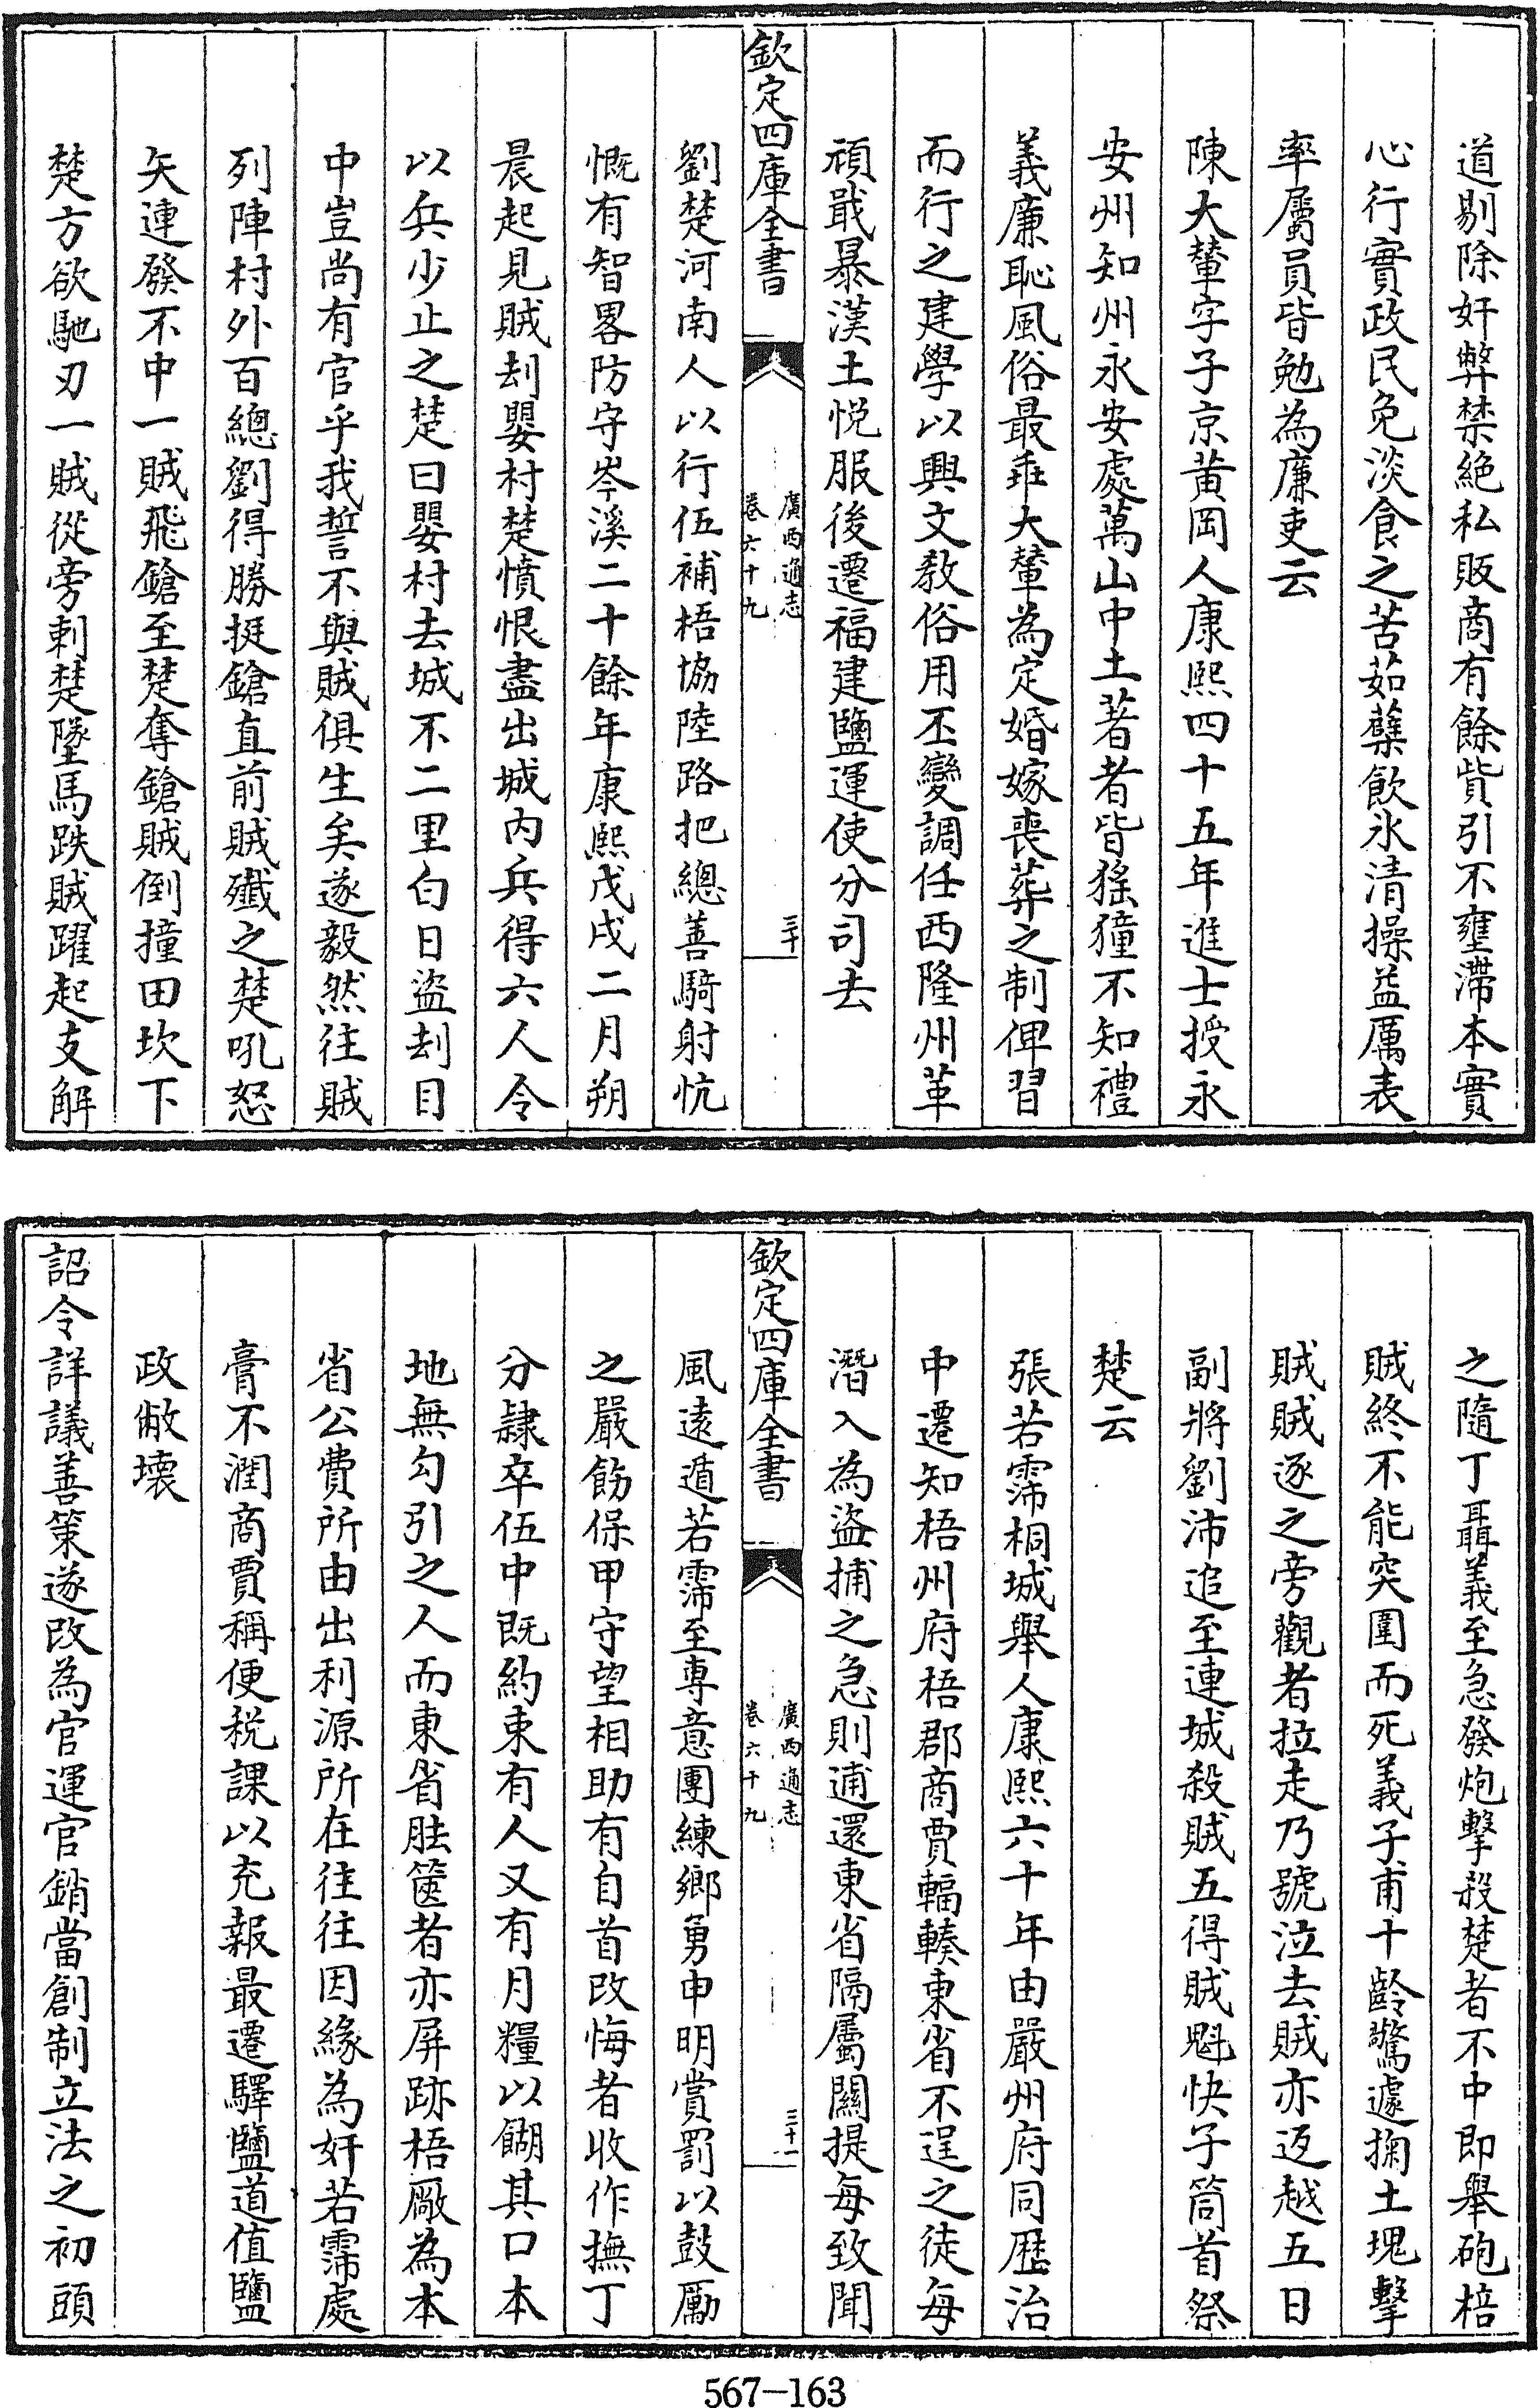 道剔除奸弊禁絶私販商有餘貲引不壅滯本實
心行實政民免淡食之苦茹蘗飲氷清操益厲表
率屬員皆勉為廉吏云
陳大輦字子京黄岡人康熙四十五年進士授永
安州知州永安處萬山中土著者皆猺獞不知禮
義廉恥風俗最乖大輦為定婚嫁喪葬之制俾習
而行之建學以興文敎俗用丕變調任西隆州革
頑戢暴漢土悦服後遷福建鹽運使分司去
欽定四庫全書
廣西通志
卷六十九
三十
劉楚河南人以行伍補梧協陸路把總善騎射忼
慨有智畧防守岑溪二十餘年康熙戊戌二月朔
晨起見賊刦嬰村楚憤恨盡出城内兵得六人令
以兵少止之楚曰嬰村去城不二里白日盜刦目
中豈尚有官乎我誓不與賊俱生矣遂毅然往賊
列陣村外百總劉得勝挺鎗直前賊殲之楚吼怒
矢連發不中一賊飛鎗至楚奪鎗賊倒撞田坎下
楚方欲馳刃一賊從旁刺楚墜馬跌賊躍起支解
之隨丁聶義至急發炮擊殺楚者不中即舉砲棓
賊終不能突圍而死義子甫十齡驚遽掬土塊擊
賊賊逐之旁觀者拉走乃號泣去賊亦返越五日
副將劉沛追至連城殺賊五得賊魁快子筒首祭
楚云
張若霈桐城舉人康熙六十年由嚴州府同歴治
中遷知梧州府梧郡商賈輻輳東省不逞之徒每
潛入為盜捕之急則逋還東省隔屬關提每致聞
欽定四庫全書
廣西通志
卷六十九
三十一
風遠遁若霈至專意團練鄉勇申明賞罰以鼓厲
之嚴飭保甲守望相助有自首改悔者收作撫丁
分隷卒伍中既約束有人又有月糧以餬其口本
地無勾引之人而東省胠篋者亦屏跡梧廠為本
省公費所由出利源所在往往因緣為奸若霈處
膏不潤商賈稱便税課以充報最遷驛鹽道值鹽
政敝壊
詔令詳議善策遂改為官運官銷當創制立法之初頭
567—163